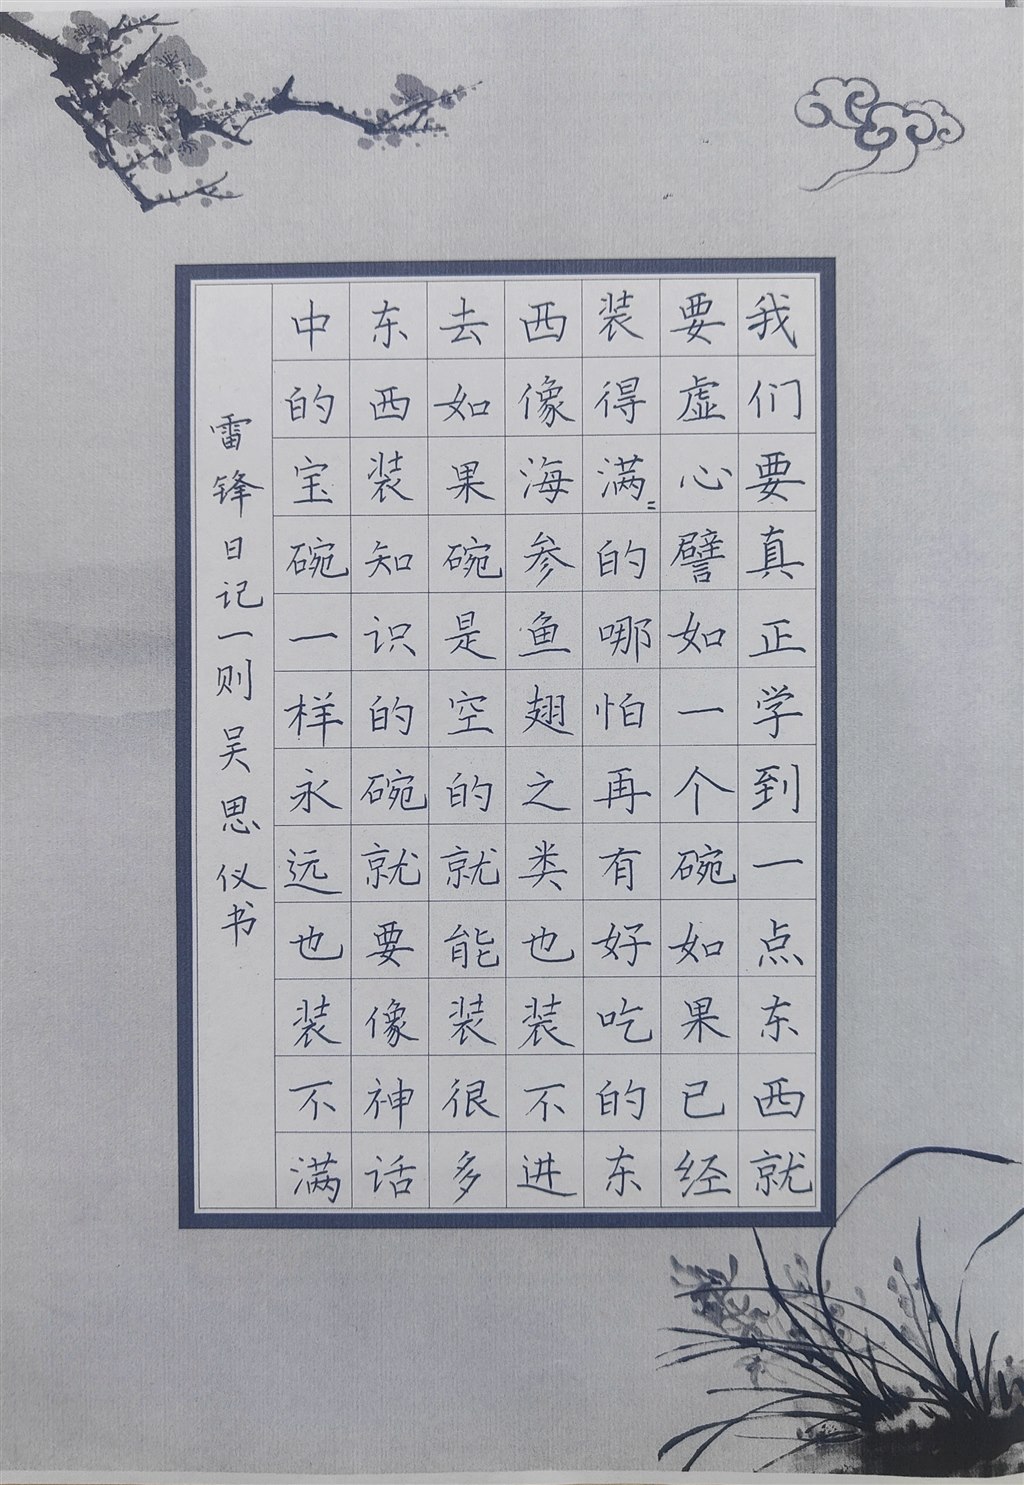 我们要真正学到一点东西就
要虚心譬如一个碗如果已经
装得满〻的哪怕再有好吃的东
西像海参鱼翅之类也装不进
去如果碗是空的就能装很多
东西装知识的碗就要像神话
中的宝碗一样永远也装不满
雷锋日记一则吴思仪书